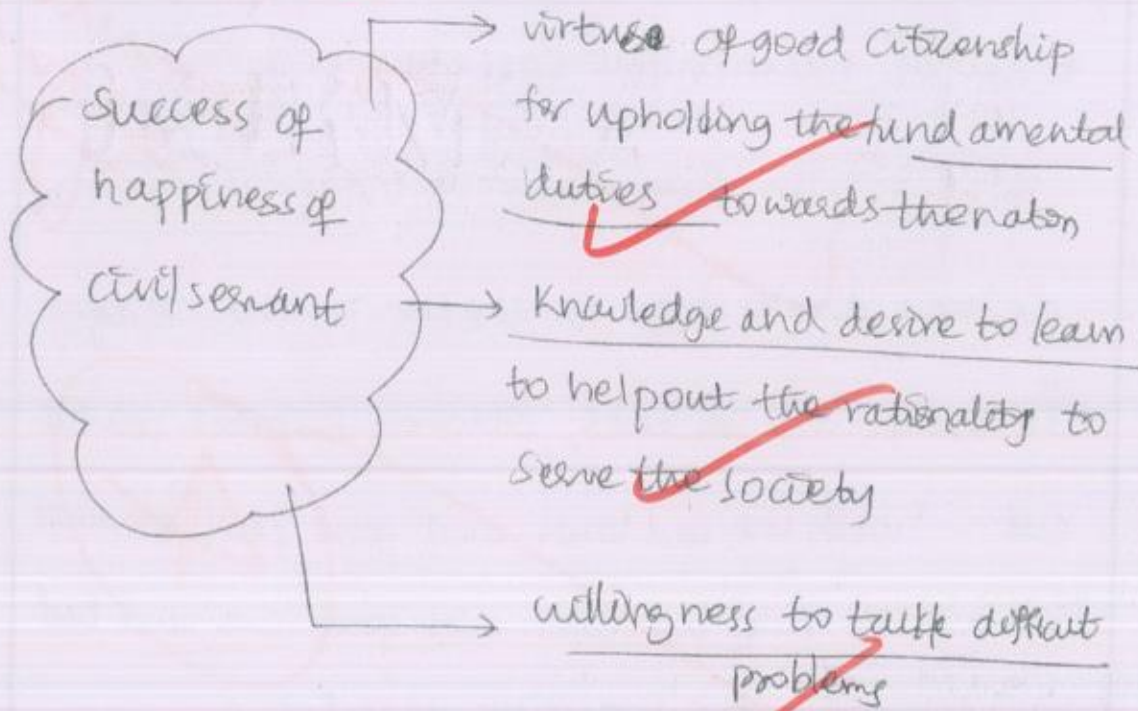 success of
happiness of
civil servant
virtuse of good citizenship
for upholding the fundamental
duties towards the naton
Knowledge and desire to learn
to help out the rationality to
serve the society
willingness to
problems